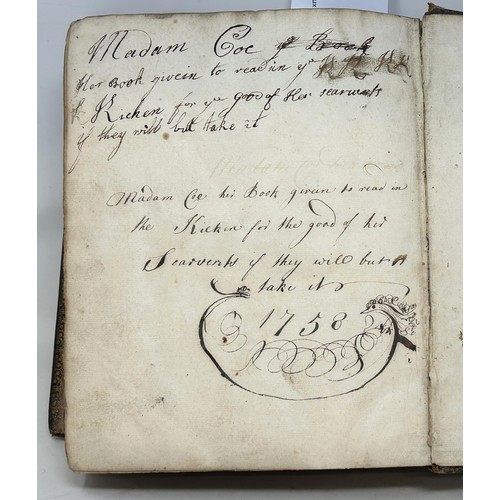 Madam Coe
Her Book givein to read in ye
Kicken for ye good of Her searvents
if they will but take it
Madam Coe her Book givein to read in
the Kicken for the good of her
Searvents if they will but
take it
1758